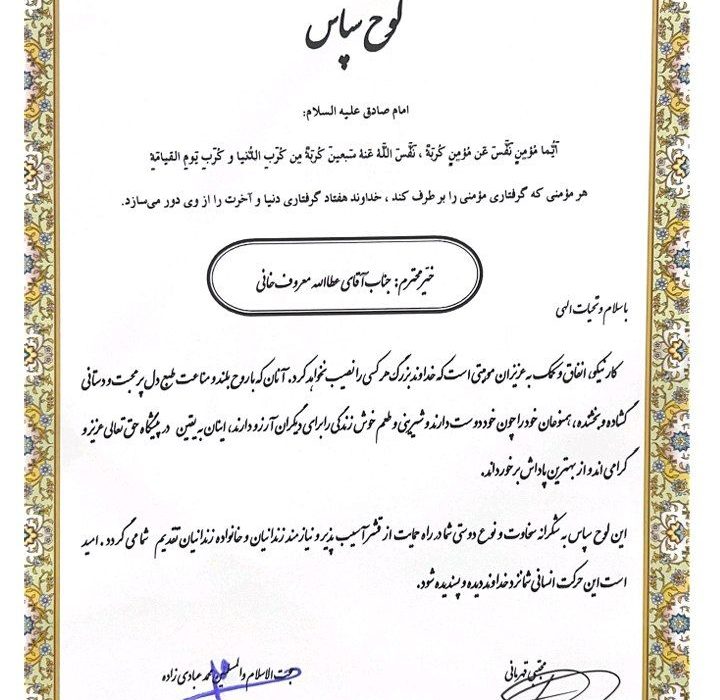 لوح سپاس
امام صادق علیه السلام:
اَیُّما مُؤمِنٍ نَفَّسَ عَن مُؤمِنٍ کُربَةً ، نَفَّسَ اللَّهُ عَنهُ سَبعینَ کُربَةً مِن کُرَبِ الدُّنیا و کُرَبِ یَومِ القیامَةِ
هر مؤمنی که گرفتاری مؤمنی را بر طرف کند ، خداوند هفتاد گرفتاری دنیا و آخرت را از وی دور می‌سازد.
خیّر محترم: جناب آقای عطاالله معروف خانی
با سلام و تحیات الهی
کار نیکو، انفاق و کمک به عزیزان موهبتی است که خداوند بزرگ هر کسی را نصیب نخواهد کرد. آنان که با روح بلند و مناعت طبع دل پر محبت و دستانی
گشاده و بخشنده، همنوعان خود را چون خود دوست دارند و شیرینی و طعم خوش زندگی را برای دیگران آرزو دارند، اینان به یقین در پیشگاه حق تعالی عزیز و
گرامی اند و از بهترین پاداش برخوردارند.
این لوح سپاس به شکرانه سخاوت و نوع دوستی شما در راه حمایت از قشر آسیب پذیر و نیازمند زندانیان و خانواده زندانیان تقدیم شما می گردد . امید
است این حرکت انسانی شما نزد خداوند دیده و پسندیده شود.
مجتبی قهرمانی
حجت الاسلام والمسلمین محمد عبادی زاده